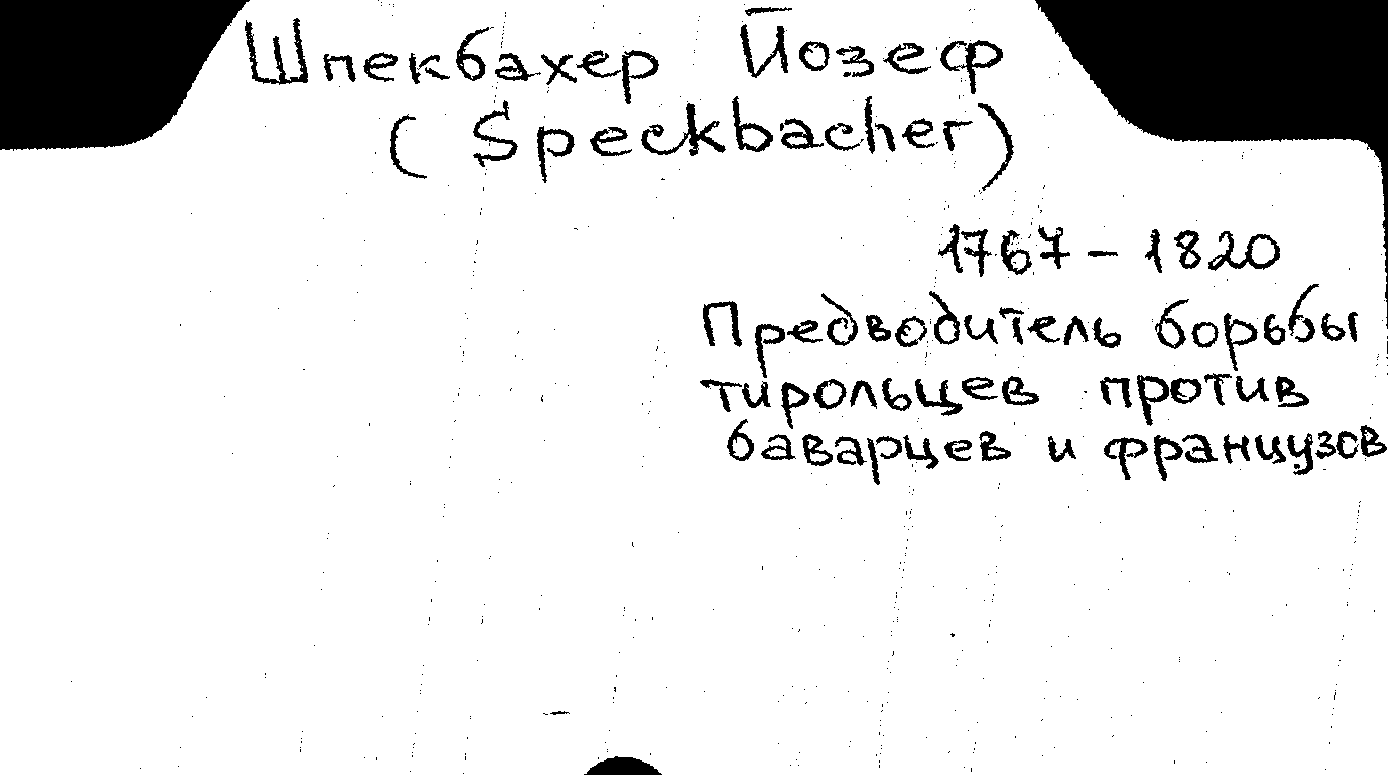 Шпекбахер Йозеф
( Speckbacher)
1767 - 1820
Предводитель борьбы
тирольцев против
баварцев и французов